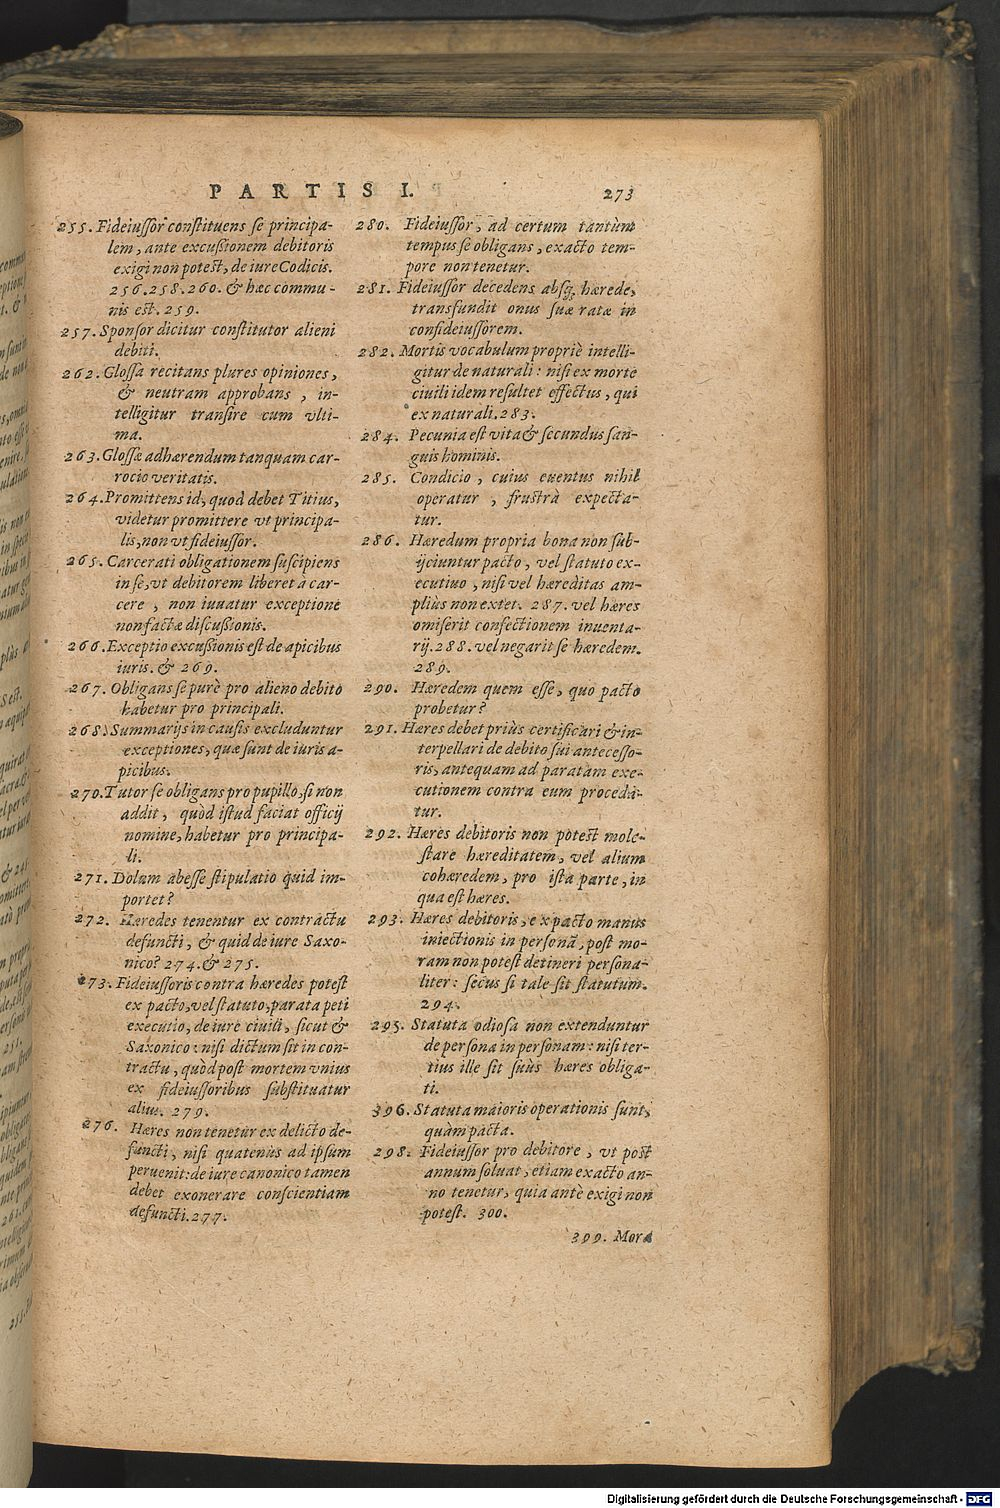 PARTIS I. 273
255. Fideiussor constituens se principa-
lem, ante excussionem debitoris
exigi non potest, de iure Codicis.
256.258.260. & hæc commu-
nis est. 259.
257. Sponsor dicitur constitutor alieni
debiti.
262. Glossa recitans plures opiniones,
& neutram approbans, in-
telligitur transire cum vlti-
ma.
263. Glossæ adhærendum tanquam car-
rocio veritatis.
264. Promittens id, quod debet Titius,
videtur promittere vt principa-
lis, non vt fideiussor.
265. Carcerati obligationem suscipiens
in se, vt debitorem liberet à car-
cere, non iuuatur exceptione
non factæ discussionis.
266. Exceptio excussionis est de apicibus
iuris. & 269.
267. Obligans se purè pro alieno debito
habetur pro principali.
268. Summarijs in causis excluduntur
exceptiones, quæ sunt de iuris a-
picibus.
270. Tutor se obligans pro pupillo, si non
addit, quòd istud faciat officij
nomine, habetur pro principa-
li.
271. Dolum abesse stipulatio quid im-
portet?
272. Hæredes tenentur ex contractu
defuncti, & quid de iure Saxo-
nico? 274. & 275.
273. Fideiussoris contra hæredes potest
ex pacto, vel statuto, parata peti
executio, de iure ciuili, sicut &
Saxonico: nisi dictum sit in con-
tractu, quòd post mortem vnius
ex fideiussoribus substituatur
alius. 279.
276. Hæres non tenetur ex delicto de-
functi, nisi quatenùs ad ipsum
peruenit: de iure canonico tamen
debet exonerare conscientiam
defuncti. 277.
280. Fideiussor, ad certum tantùm
tempus se obligans, exacto tem-
pore non tenetur.
281. Fideiussor decedens absq; hærede,
transfundit onus suæ ratæ in
confideiussorem.
282. Mortis vocabulum propriè intelli-
gitur de naturali: nisi ex morte
ciuili idem resultet effectus, qui
ex naturali. 283.
284. Pecunia est vita & secundus san-
guis hominis.
285. Condicio, cuius euentus nihil
operatur, frustrà expecta-
tur.
286. Hæredum propria bona non sub-
ijciuntur pacto, vel statuto ex-
ecutiuo, nisi vel hæreditas am-
pliùs non extet. 287. vel hæres
omiserit confectionem inuenta-
rij. 288. vel negarit se hæredem.
289.
290. Hæredem quem esse, quo pacto
probetur?
291. Hæres debet priùs certificari & in-
terpellari de debito sui antecesso-
ris, antequam ad paratam exe-
cutionem contra eum proceda-
tur.
292. Hæres debitoris non potest mole-
stare hæreditatem, vel alium
cohæredem, pro ista parte, in
qua est hæres.
293. Hæres debitoris, ex pacto manus
iniectionis in personã, post mo-
ram non potest detineri persona-
liter: secus si tale sit statutum.
294.
295. Statuta odiosa non extenduntur
de persona in personam: nisi ter-
tius ille sit suùs hæres obliga-
ti.
396. Statuta maioris operationis sunt,
quàm pacta.
298. Fideiussor pro debitore, vt post
annum soluat, etiam exacto an-
no tenetur, quia antè exigi non
potest. 300.
399. Mora
Digitalisierung gefördert durch die Deutsche Forschungsgemeinschaft - DFG